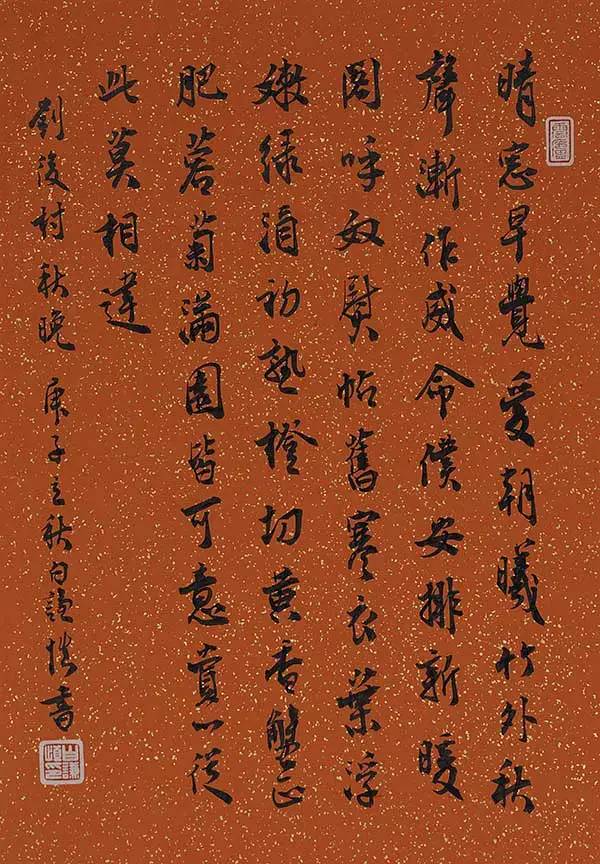 晴窓早覺愛朝曦竹外秋
聲漸作威命僕安排新暖
閣呼奴熨帖舊寒衣葉浮
嫩緑酒初熟橙切黄香蟹正
肥蓉菊滿園皆可意賞心從
此莫相違
劉後村秋晚 庚子之秋白謙慎書
白謙慎印